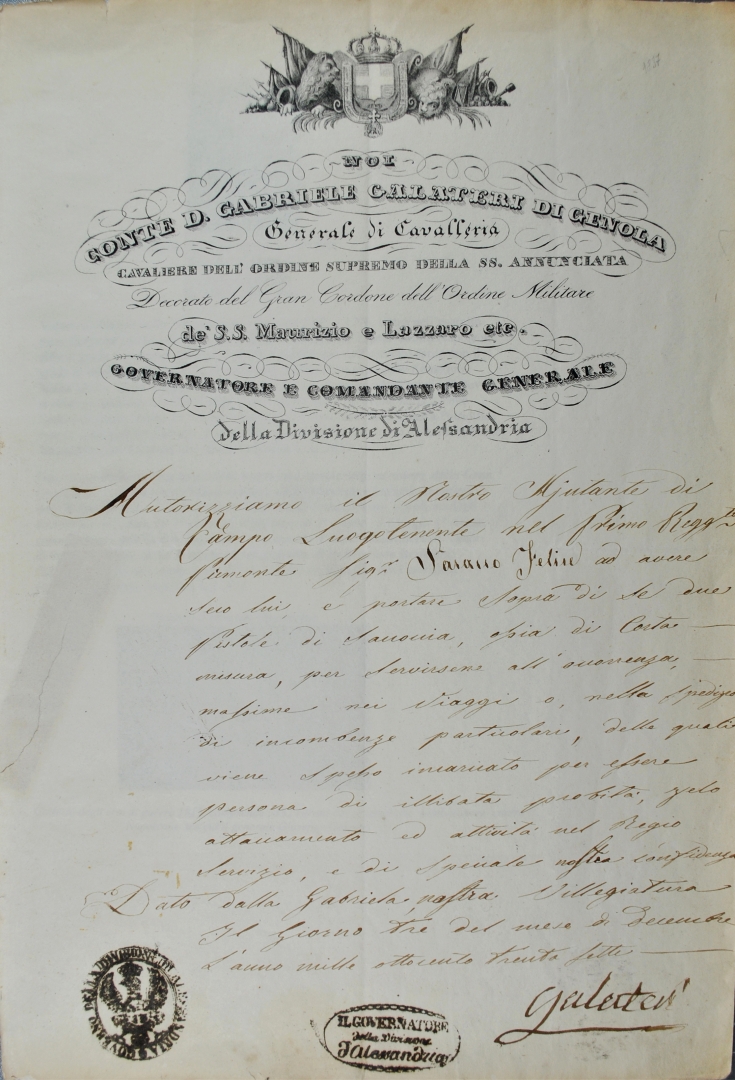 NOI
CONTE D. GABRIELE GALATERI DI GENOLA
Generale di Cavalleria
CAVALIERE DELL' ORDINE SUPREMO DELLA SS. ANNUNCIATA
Decorato del Gran Cordone dell'Ordine Militare
de' S.S. Maurizio e Lazzaro etc.
GOVERNATORE E COMANDANTE GENERALE
della Divisione di Alessandria
Autorizziamo il Nostro Ajutante di
Campo Luogotenente nel Primo Reggto
Piemonte Sigr Felice ad avere
seco lui, e portare sopra di se due
Pistole di Saccocia, ossia di Corta
misura, per servirsene all'occorrenza,
massime nei Viaggi o, nella
di incombenze particolari, delle quali
viene spesso incaricato per essere
persona di illibata probità, zelo
attaccamento ed attività nel Regio
Servizio, e di speciale nostra confidenza
Dato dalla Gabriela, nostra Villegiatura
Il Giorno tre del mese di Decembre
L'anno mille ottocento trenta sette
Galateri
GOVERNO DELLA DIVISIONE DI ALESSANDRIA
IL GOVERNATORE
della Divisione
d'Alessandria